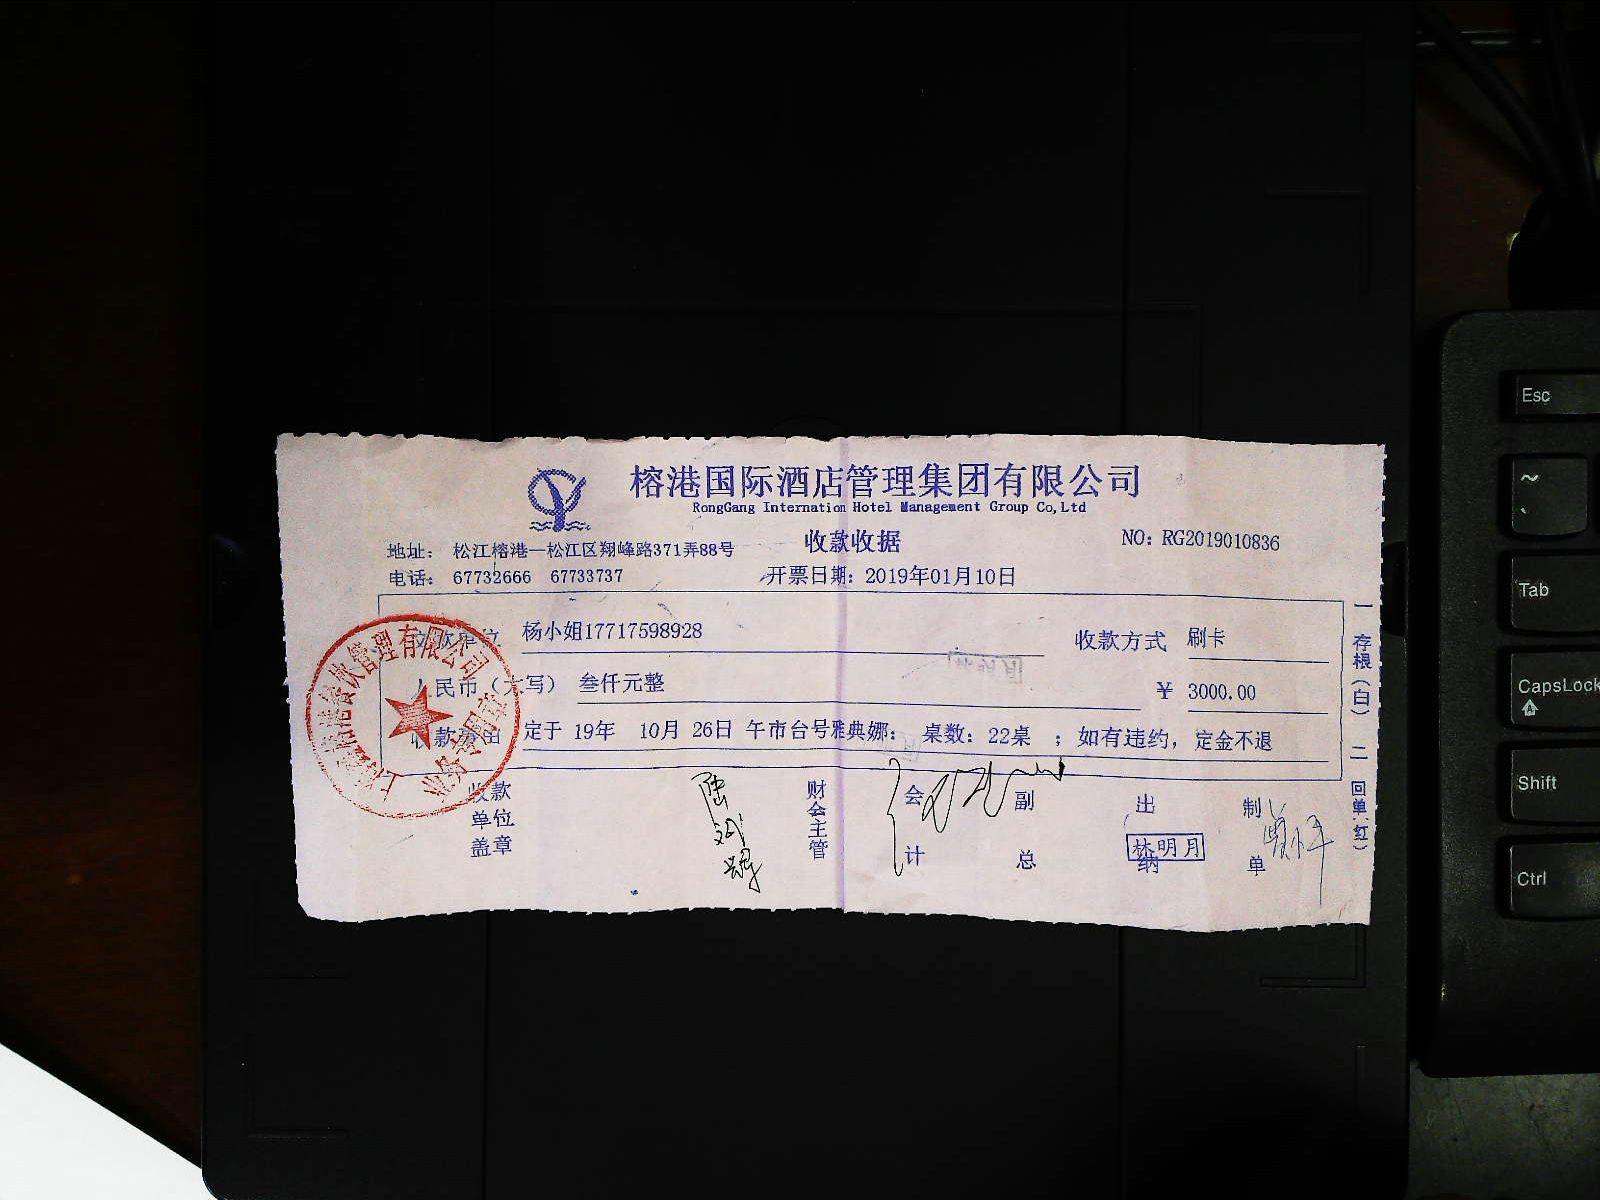 榕港国际酒店管理集团有限公司
RongGang Internation Hotel Management Group Co,Ltd
收款收据
NO: RG2019010836
地址: 松江榕港—松江区翔峰路371弄88号
电话: 67732666 67733737
开票日期: 2019年01月10日
杨小姐17717598928
收款方式 刷卡
人民币(大写) 叁仟元整
¥ 3000.00
收款 定于 19年 10月 26日 午市台号雅典娜: 桌数: 22桌 ; 如有违约, 定金不退
收款单位盖章
财会主管
会计
副总
出纳
林明月
制单
一存根(白)
二回单(红)
餐饮管理有限公司
业务专用章
Esc
~
`
Tab
CapsLock
A
Shift
Ctrl